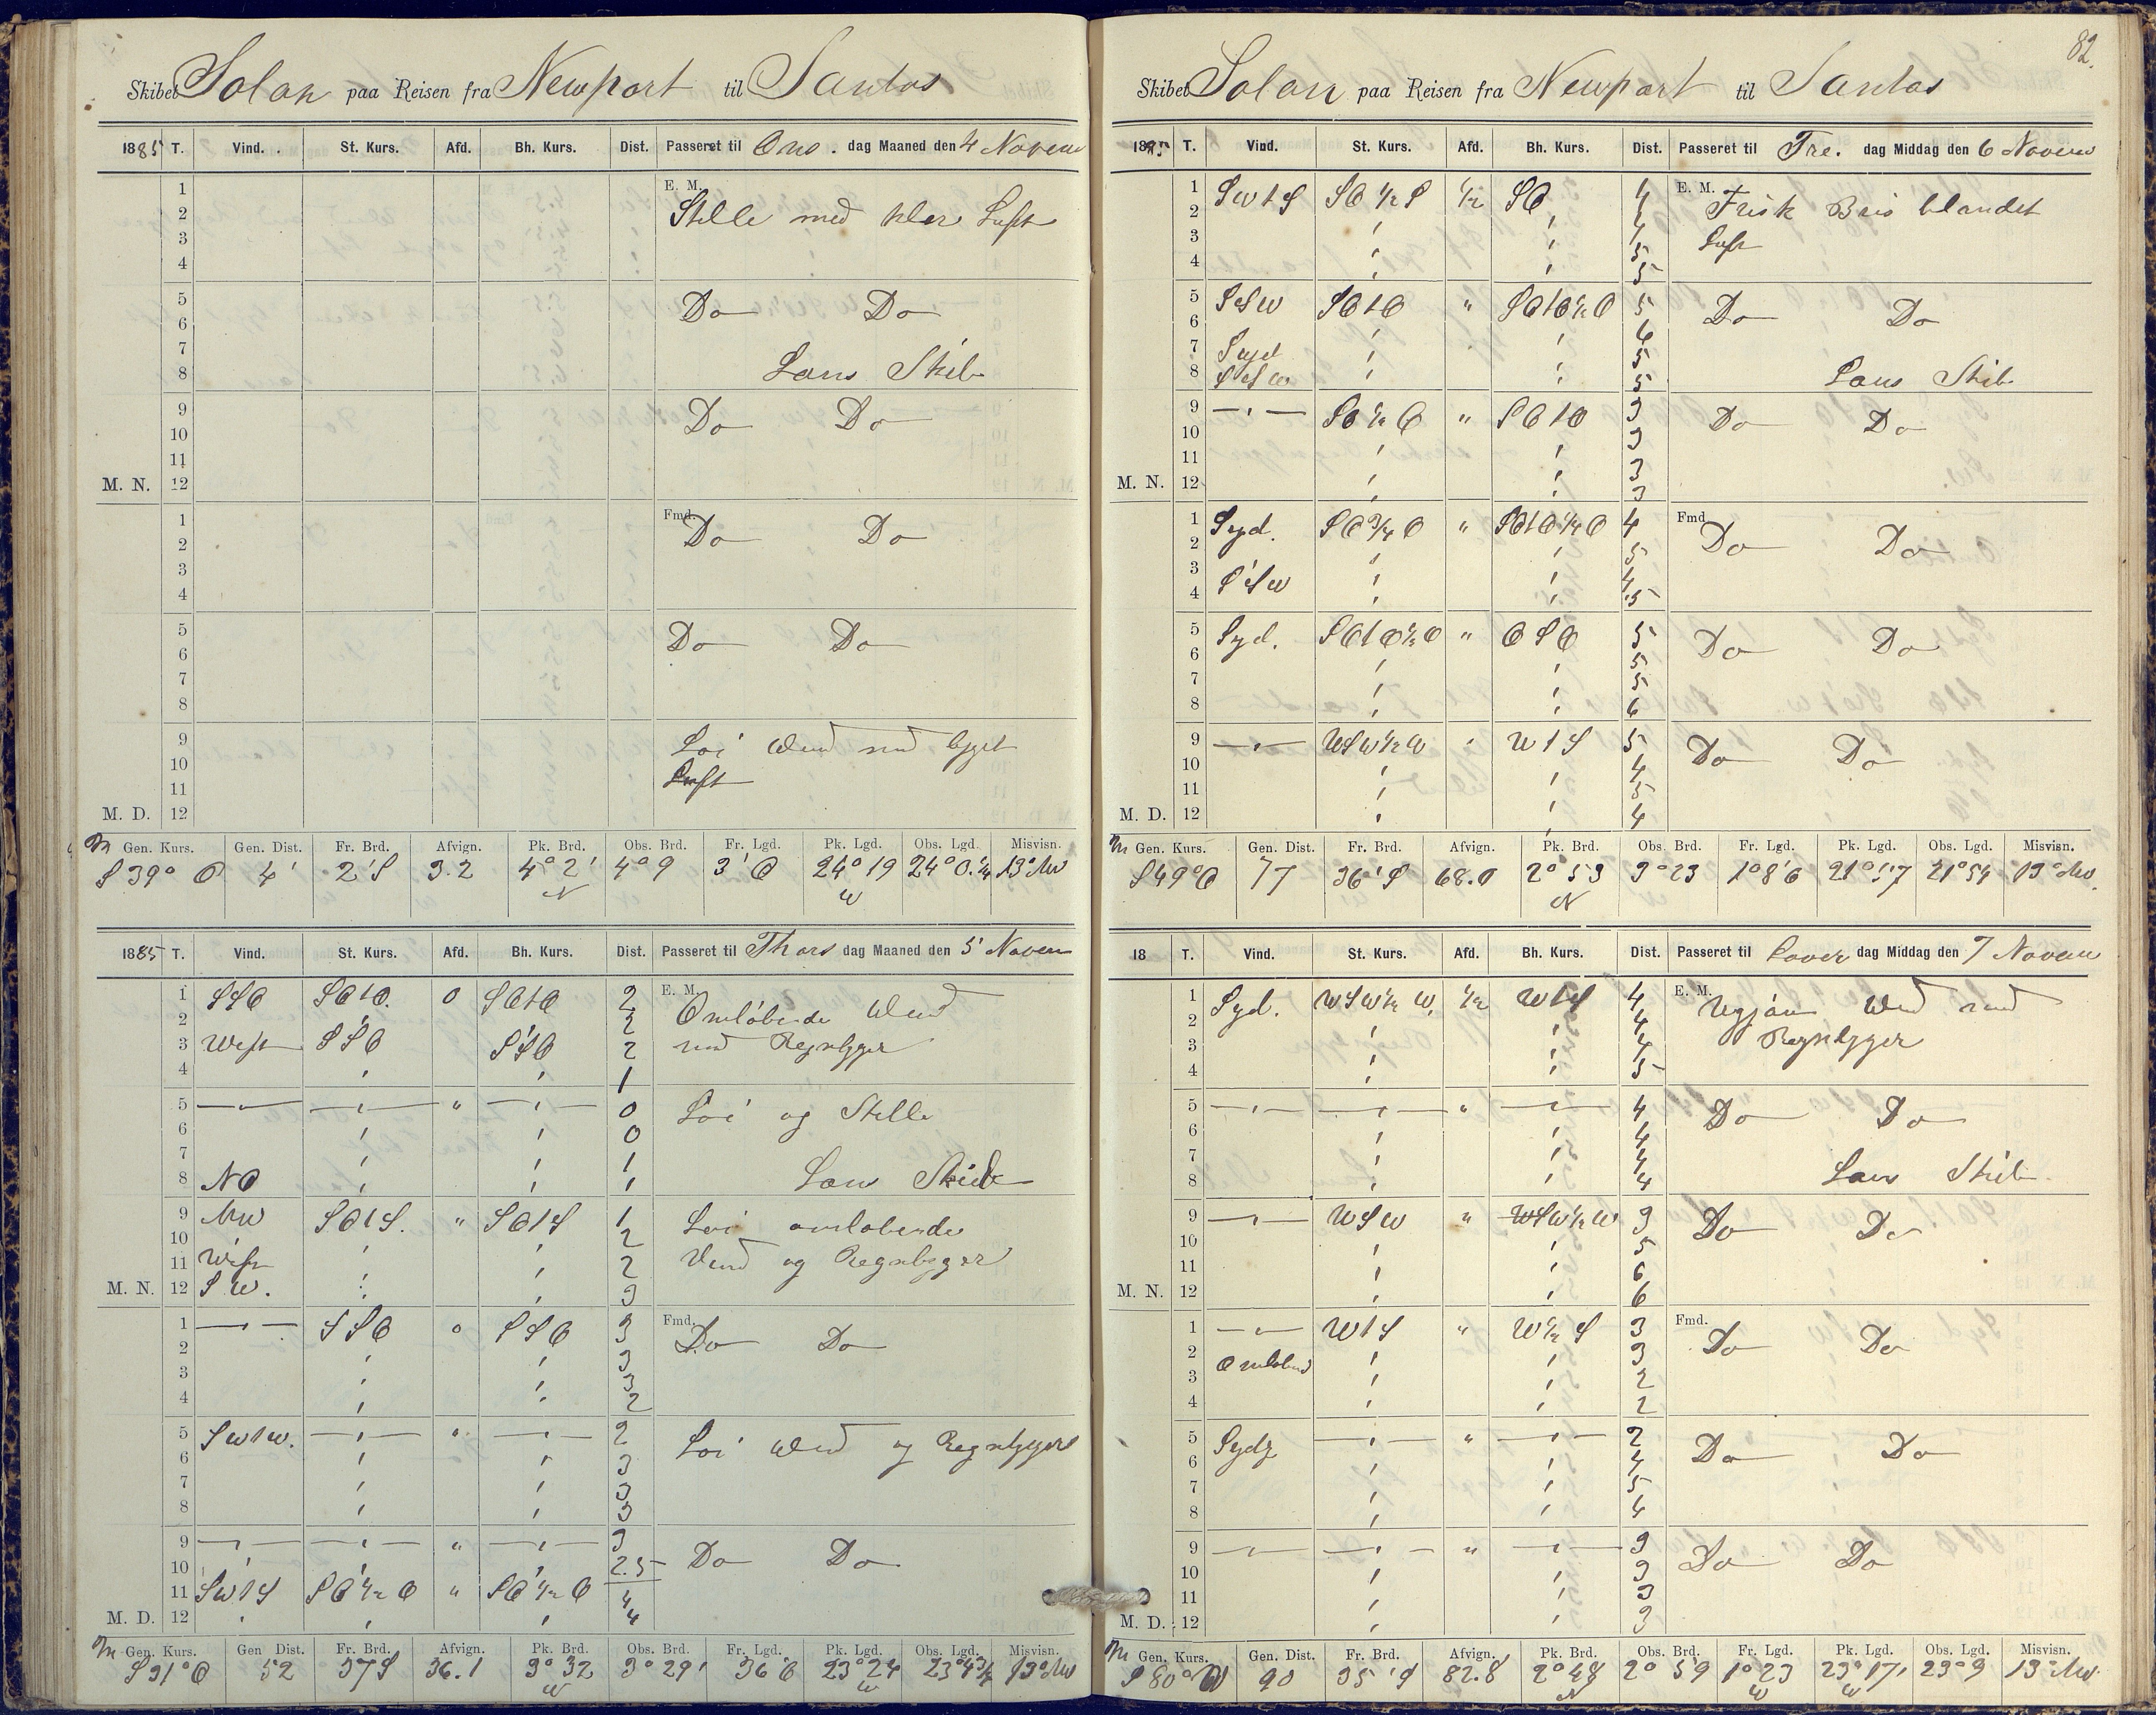 82.
Skibet Solan paa Reisen fra Newport til Santos
1885 T. Vind. St. Kurs. Afd. Bh. Kurs. Dist. Passeret til Ons. dag Maaned den 4 Novem
1 E. M.
2 Stille med klar Luft
3
4
5 Do Do
6
7
8 Lans Skib
9 Do Do
10
11
M. N. 12
1 Fmd. Do Do
2
3
4
5 Do Do
6
7
8
9 Loi Vind med bygct
10 Luft
11
M. D. 12
Gen. Kurs. Gen. Dist. Fr. Brd. Afvign. Pk. Brd. Obs. Brd. Fr. Lgd. Pk. Lgd. Obs. Lgd. Misvisn.
S 39° O 4' 2'S 3.2 4° 2' N 4° 9 3' O 24° 19 W 24° 0.¼ 19° NW
1885 T. Vind. St. Kurs. Afd. Bh. Kurs. Dist. Passeret til Thors dag Maaned den 5 Novem
1 SSO SO1O. 0 SO1O 2 E. M. Omløbende Vind
2 ' ' 2
3 West SSO SSO 2 med Regnbyger
4 ' ' 1
5 —"— —"— " —"— 0 Loi og Stille
6 ' ' 0
7 ' ' 1
8 NO ' ' 1 Lans Skib
9 NW SO1S. " SO1S 1 Loi omlobende
10 ' ' 2
11 West ' ' 2 Vind og Regnbyger
M. N. 12 SW. ' ' 3
1 —"— SSO 0 SSO 3 Fmd. Do Do
2 ' ' 3
3 ' ' 3
4 ' ' 2
5 SW1W. —"— " —"— 2 Loi Vind og Regnbyger
6 ' ' 3
7 ' ' 3
8 ' ' 3
9 —"— —"— " —"— 3 Do Do
10 ' ' 2.5
11 SW1S SO½O " SO½O 4
M. D. 12 ' ' ' 4
Gen. Kurs. Gen Dist. Fr. Brd. Afvign. Pk. Brd. Obs. Brd. Fr. Lgd. Pk. Lgd. Obs. Lgd. Misvisn.
S 31° O 52 37 S 36.1 3° 32 3° 29' 36' O 23° 24 W 19° NW
Skibet Solan paa Reisen fra Newport til Santos
18 T. Vind. St. Kurs. Afd. Bh. Kurs. Dist. Passeret til Fre. dag Middag den 6 Novem
1 SW1S SO½S ½ SO 4 E. M. Frisk Bris blandet
2 ' ' 4
3 ' ' 4 Luft
4 ' ' 5
5 SSW SO1O " SO1O½O 5 Do Do
6 ' ' 6
7 Syd ' ' 5
8 SSW ' ' 5 Lans Skib
9 —"— SO½O " SO1O 3 Do Do
10 ' ' 3
11 ' ' 3
M. N. 12 ' ' 3
1 Syd. SO¾O " SO1O¼O 4 Fmd Do Do
2 ' ' 5
3 SSW ' ' 4
4 ' ' 5
5 Syd. SO1O½O " OSO 5 Do Do
6 ' ' 5
7 ' ' 5
8 ' ' 6
9 —"— WSW½W " W1S 5 Do Do
10 ' ' 4
11 ' ' 5
M. D. 12 ' ' 4
Gen. Kurs. Gen. Dist. Fr. Brd. Afvign. Pk. Brd. Obs. Brd. Fr. Lgd. Pk. Lgd. Obs. Lgd. Misvisn.
S 49° O 77 36' S 68.0 2° 53 N 3° 23 1° 8' O 21° 57 21° 54 19° NW
18 T. Vind. St. Kurs. Afd. Bh. Kurs. Dist. Passeret til Lover dag Middag den 7 Novem
1 Syd. WSW½W. ½ W1S 4 E. M. Ugjævn Vind med
2 ' ' 4 Regnbyger
3 ' ' 4
4 ' ' 5
5 —"— —"— " —"— 4 Do Do
6 ' ' 4
7 ' ' 4
8 ' ' 4 Lans Skib
9 —"— WSW " WSW½W 3 Do Do
10 ' ' 5
11 ' ' 6
M. N. 12 ' ' 6
1 —"— W1S " W½S 3 Fmd. Do Do
2 Omlobend ' ' 3
3 ' ' 2
4 ' ' 2
5 Sydg —"— " —"— 2 Do Do
6 ' ' 4
7 ' ' 5
8 ' ' 4
9 —"— —"— " —"— 3 Do Do
10 ' ' 3
11 ' ' 3
M. D. 12 ' ' 3
Gen. Kurs. Gen. Dist. Fr. Brd. Afvign. Pk. Brd. Obs. Brd. Fr. Lgd. Pk. Lgd. Obs. Lgd. Misvisn.
S 80° W 90 35' S 82.8 2° 48 N 2° 59 1° 23 W 23° 17' W 23° 9 19° NW